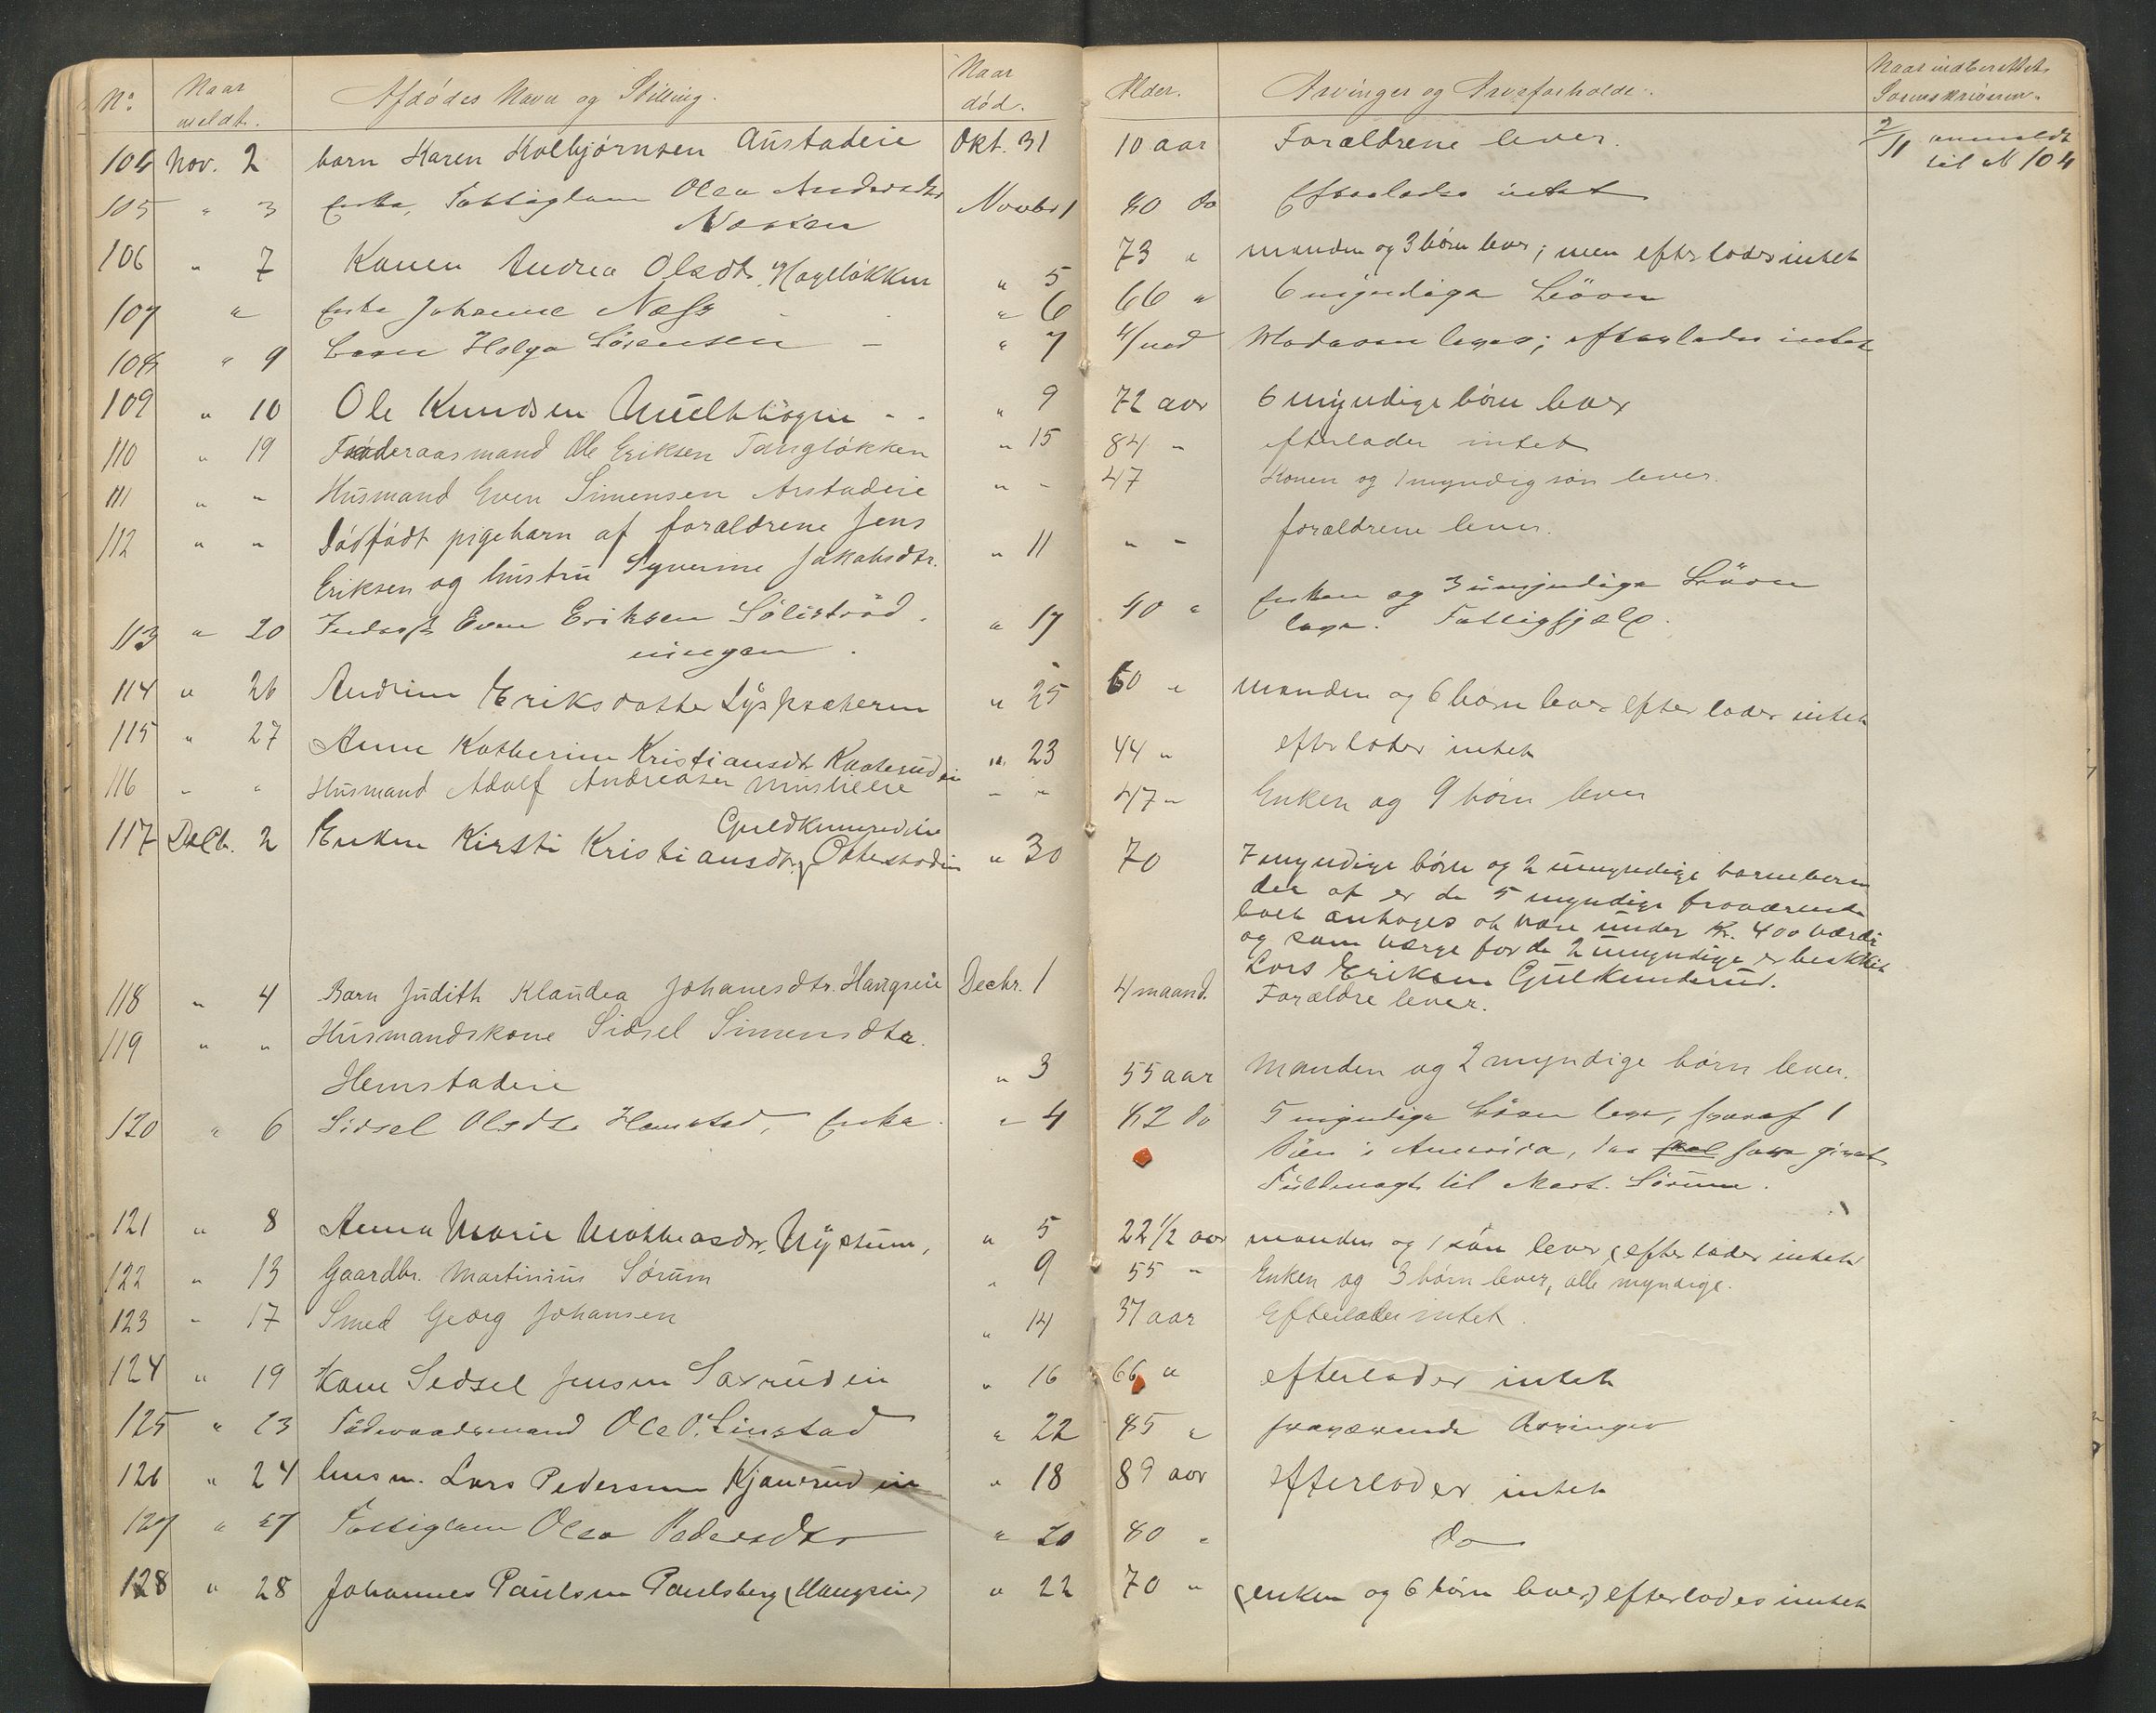 No. Naar meldt. Afdödes Navn og Stilling. Naar död. Alder. Arvinger og Arveforholde. Naar indberettet Sorenskriveren.
104 Nov. 2 barn Karen Kolbjörnsen Austadeie Okt. 31 10 aar Forældrene lever. 2/11 anmeldt
til N 104
105 " 3 Enke, Fattiglem Olea Andersdtr Novbr 1 80 do Efterlader intet
Næsten
106 " 7 Konen Andrea Olsdtr. Hagelökken " 5 73 " manden og 3 börn lever; men efterlader intet
107 " Enke Johanne Næss " 6 66 " 6 myndige Börn
108 " 9 Barn Helga Sörensen " 7 4/md Moderen lever; efterlader intet
109 " 10 Ole Knudsen " 9 72 aar 6 myndige börn lever
110 " 19 Föderaasmand Ole Eriksen Tanglökken " 15 84 " efterlader intet
111 " " Husmand Even Simensen Arstadeie " " 47 Konen og 1 myndig sön lever.
112 " " Dödfödt pigebarn af forældrene Jens " 11 " " forældrene lever.
Eriksen og hustru Syverine Jakobsdtr.
113 " 20 Inders. Even Eriksen " 17 40 " Enken og 3 umyndige Börn
ningen. lever. Fattighjælp.
114 " 26 Andrine Eriksdatter Lysksæteren " 25 60 " manden og 6 börn lever efterlader intet
115 " 27 Anne Katherine Kristiansdtr " 23 44 " efterlader intet
116 " " Husmand Adolf Andreasen " " 47 " Enken og 9 börn lever
Guldkunrudeie
117 Decbr. 2 Enken Kirsti Kristiansdtr. Ottestadeie " 30 70 7 myndige börn og 2 umyndige barnebörn
der af er de 5 myndige fraværende
boet antages at være under Kr. 400 værdi
og som værge for de 2 umyndige er beskikket
Lars Eriksen Gulkunderud.
118 " 4 Barn Judith Klaudia Johanesdtr. Haugseie Decbr. 1 4 maand. Forældre lever.
119 " " Husmandskone Sidsel Simensdtr.
Hemstadeie " 3 55 aar Manden og 2 myndige börn lever.
120 " 6 Sidsel Olsdtr Hemstad, Enke. " 4 82 do 5 myndige Börn lever, hvoraf 1
Sön i Amerika, der skal have givet
Fuldmagt til Mart. Sörum.
121 " 8 Anna Marie Mathiasdtr, Nystuen, " 5 22 1/2 aar manden og 1 sön lever, efterlader intet
122 " 13 Gaardbr. Martinius Sörum " 9 55 " Enken og 3 börn lever, alle myndige.
123 " 17 Smed Georg Johansen " 14 37 aar Efterlader intet.
124 " 19 Kone Sidsel Jensen Saxrudeie " 16 66 " efterlader intet
125 " 23 Föderaadsmand Ole O. Linstad " 22 85 " fraværende Arvinger
126 " 24 husm. Lars Pedersen Kjønerudeie " 18 89 aar efterlader intet
127 " 27 Fattiglem Olea Pedersdtr " 20 80 " do
128 " 28 Johannes Paulsen Paulsberg (Haugseie) " 22 70 " (enken og 6 börn lever) efterlades intet